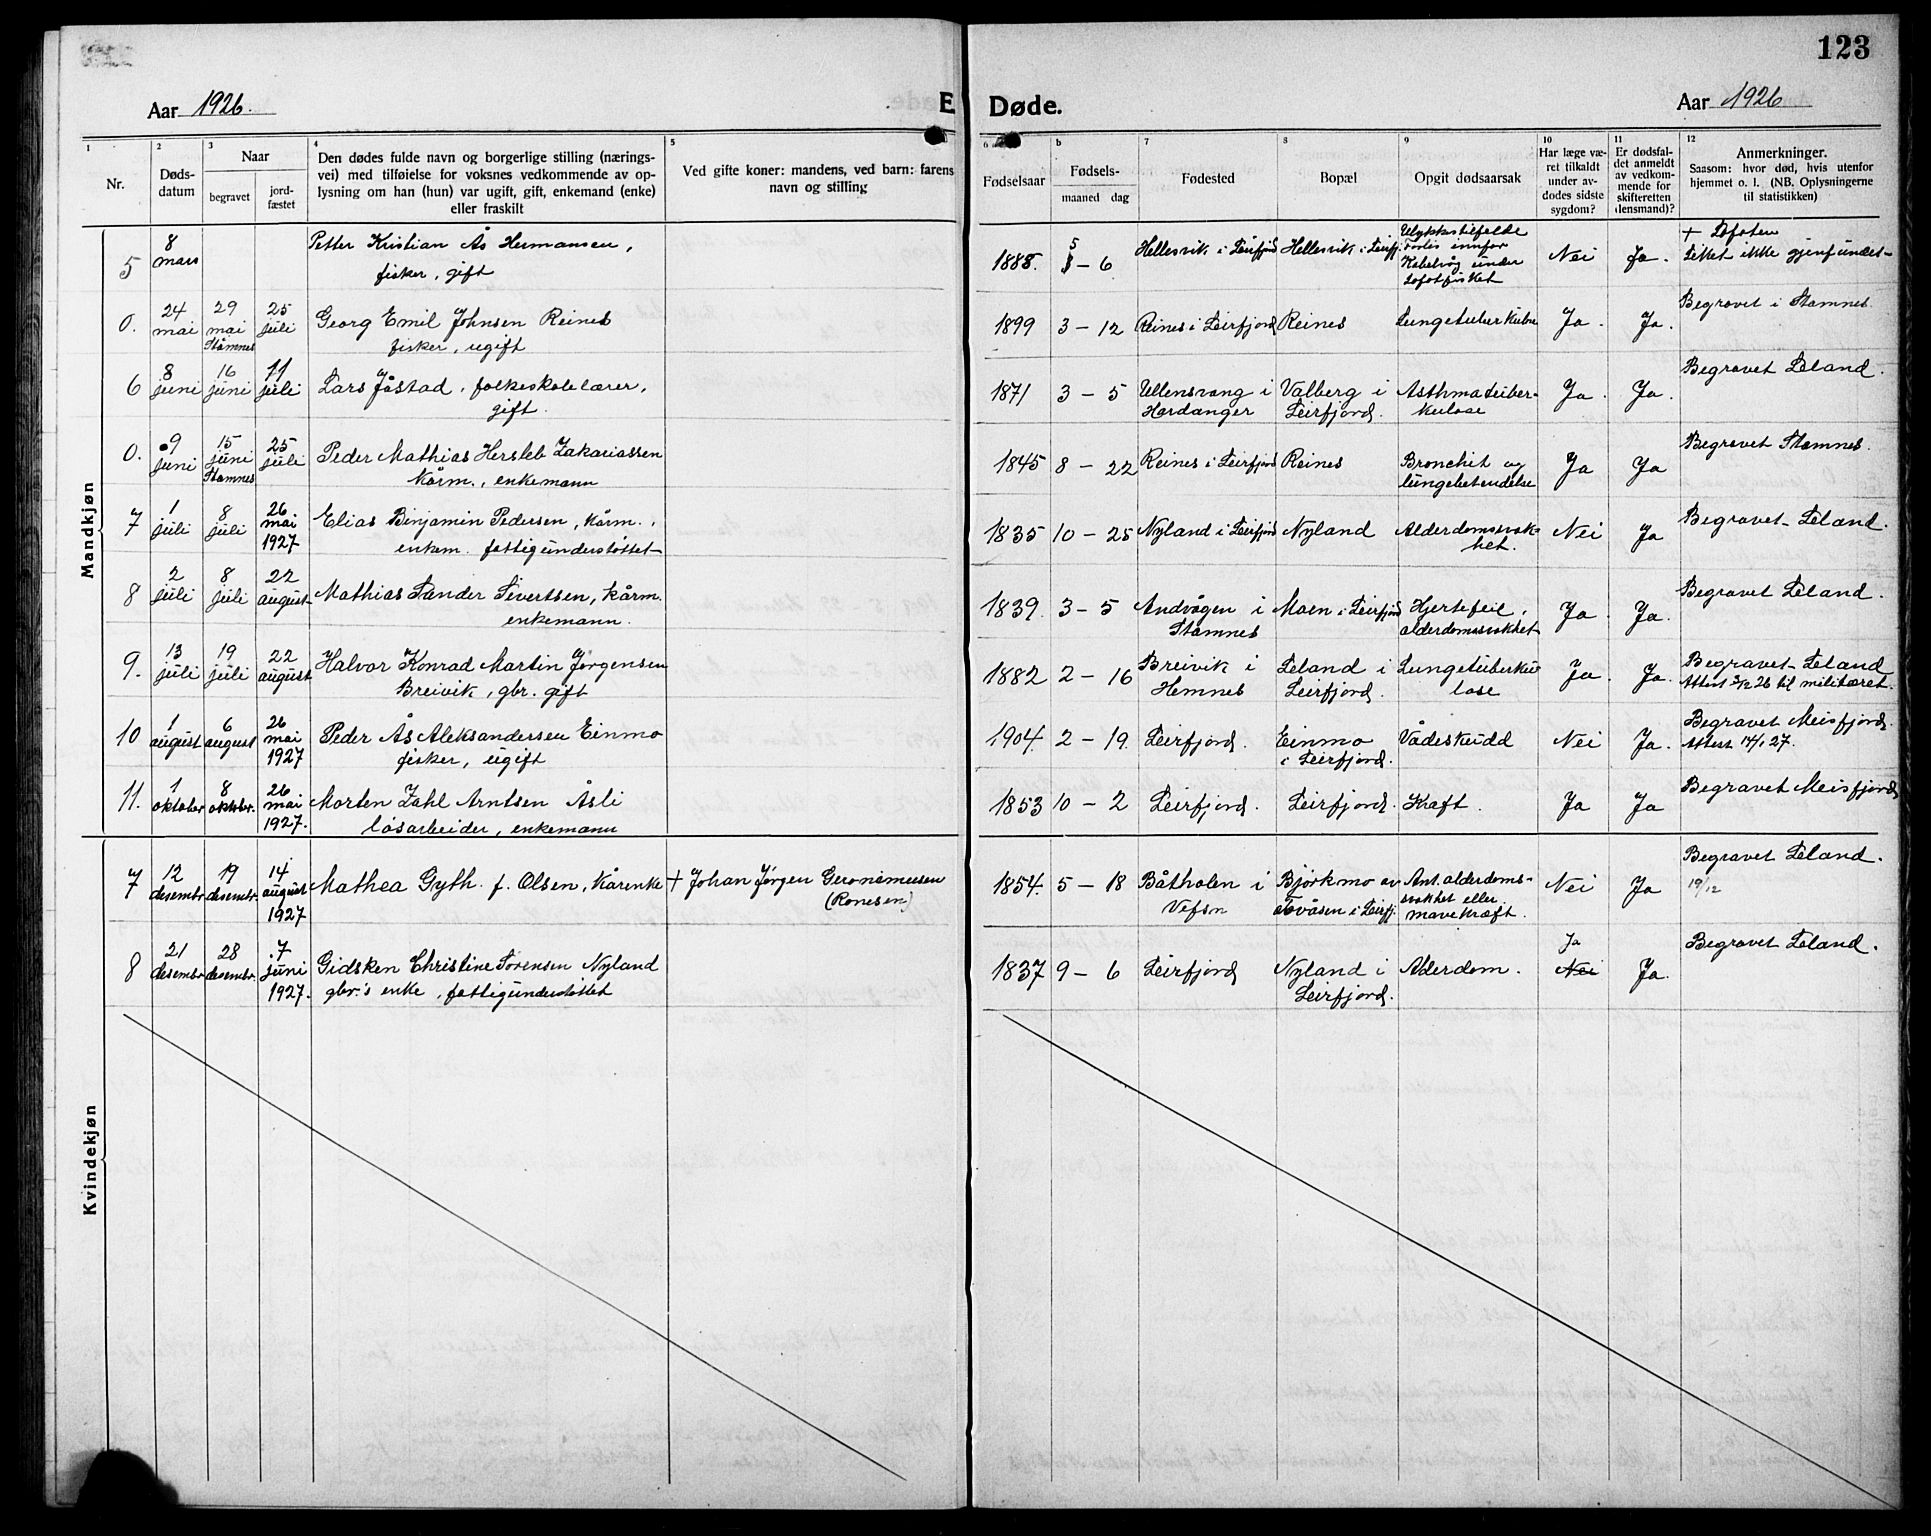 123
Aar 1926.
E Døde.
Aar 1926
1
Nr.
2
Døds-
datum
3
Naar
begravet
jord-
fæstet
4
Den dødes fulde navn og borgerlige stilling (nærings-
vei) med tilføielse for voksnes vedkommende av op-
lysning om han (hun) var ugift, gift, enkemand (enke)
eller fraskilt
5
Ved gifte koner: mandens, ved barn: farens
navn og stilling
6
Fødselsaar
b
Fødsels-
maaned dag
7
Fødested
8
Bopæl
9
Opgit dødsaarsak
10
Har læge væ-
ret tilkaldt
under av-
dødes sidste
sygdom?
11
Er dødsfal-
det anmeldt
av vedkom-
mende for
skifteretten
(lensmand)?
12
Anmerkninger.
Saasom: hvor død, hvis utenfor
hjemmet o. l. (NB. Oplysningerne
til statistikken)
Mandkjøn
5
8
mars
Petter Kristian Ås Hermansen,
fisker, gift
1888.
5
- 6
Hellesvik i Leirfjord
Hellesvik i Leirfj.
Ulykkestilfelde
Forlis innfor
Kabelvåg under
Lofotfisket
Nei
Ja.
+ Lofoten
Liket ikke gjenfundet
0.
24
mai
29
mai
Stamnes
25
juli
Georg Emil Johnsen Reines
fisker, ugift
1899
3 - 12
Reines i Leirfjord
Reines
Lungetuberkulose
Ja.
Ja.
Begravet i Stamnes
6
8
juni
16
juni
11
juli
Lars Jåstad, folkeskolelærer,
gift.
1871
3 - 5
Ullensvang i
Hardanger
Valberg i
Leirfjord.
Asthmatuber-
kulose
Ja.
Ja.
Begravet Leland.
0.
9
juni
15
juni
Stamnes
25
juli
Peder Mathias Hersleb Zakariassen
kårm., enkemann
1845
8 - 22
Reines i Leirfjord
Reines
Bronchit og
lungebetendelse
Ja
Ja
Begravet Stamnes.
7
1
juli
8
juli
26
mai
1927
Elias Binjamin Pedersen, kårm.,
enkem. fattigunderstøttet
1835
10 - 25
Nyland i Leirfjord
Nyland
Alderdomssvak-
het.
Nei
Ja
Begravet Leland.
8
2
juli
8
juli
22
august
Mathias Sander Sivertsen, kårm.
enkemann.
1839.
3 - 5
Andvågen i
Stamnes
Moen i Leirfjord
Hjertefeil,
alderdomssvakhet
Ja
Ja.
Begravet Leland.
9.
13
juli
19
juli
22
august
Halvor Konrad Martin Jørgensen
Breivik, gbr. gift
1882
2 - 16
Breivik i
Hemnes
Leland i
Leirfjord.
Lungetuberku-
lose
Ja.
Ja.
Begravet Leland
Attest 2/12 26 til militæret.
10
1
august
6
august
26
mai
1927
Peder Ås Aleksandersen Einmo
fisker, ugift
1904.
2 - 19.
Leirfjord.
Einmo
i Leirfjord.
Vådeskudd
Nei
Ja.
Begravet Meisfjord.
Attest 14/1 27.
11.
1
oktober
8
oktbr.
26
mai
1927.
Morten Zahl Arntsen Åsli
løsarbeider, enkemann
1853
10 - 2
Leirfjord.
Leirfjord.
Kræft.
Ja
Ja
Begravet Meisfjord
Kvindekjøn
7
12
desembr
19
desembr.
14
august
1927
Mathea Gyth. f. Olsen, kårenke
+ Johan Jørgen Geronimusen
(Ronesen)
1854.
5 - 18
Båtholen i
Vefsn
Bjørkmo av
Tovåsen i Leirfj.
Ant. alderdoms-
svakhet eller
mavekræft.
Nei
Ja
Begravet Leland.
19/12
8
21
desembr
28
desembr.
7
juni
1927.
Gidsken Christine Sørensen Nyland
gbr.'s enke, fattigunderstøttet
1837
9 - 6
Leirfjord
Nyland i
Leirfjord.
Alderdom.
Ja
Nei
Ja.
Begravet Leland.